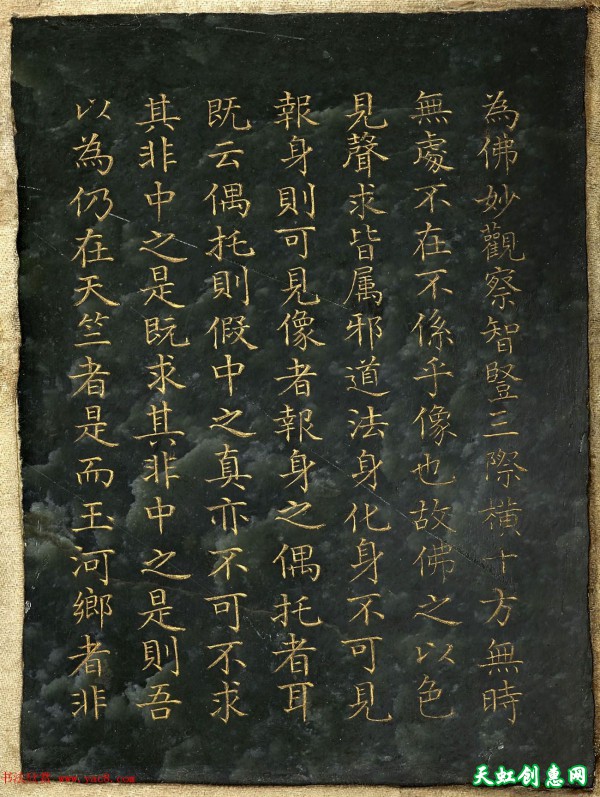 為佛妙觀察智豎三際橫十方無時
無處不在不係乎像也故佛之以色
見聲求皆属邪道法身化身不可見
報身則可見像者報身之偶托者耳
既云偶托則假中之真亦不可不求
其非中之是既求其非中之是則吾
以為仍在天竺者是而玉河鄉者非
天虹创惠网